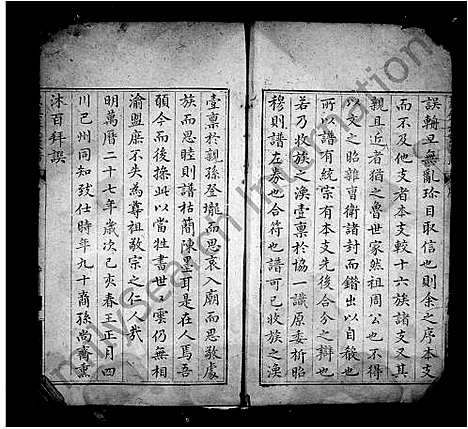 誤輪丑無亂珎目取信也則余之序本支
而不及他支者本支較十六族諸支又其
親且近者猶之魯世家然祖周公也不得
以文之昭雜曹衛諸封而錯出以自散也
所以譜有統宗有本支先後合分之辯也
若乃收族之渙壹稟於協一識原委析昭
穆則譜左券也合符也譜可已收族之渙
壹稟於親孫登壠而思哀入廟而思敬處
族而思睦則譜枯簡陳墨耳是在人焉吾
願今而後操此以當牲書世雲仍無相
渝盟庶不失為尊祖敬宗之仁人哉
明萬曆二十七年歲次己亥春王正月四
川己州同知致仕時年九十裔孫尚齋熏
沐百拜譔